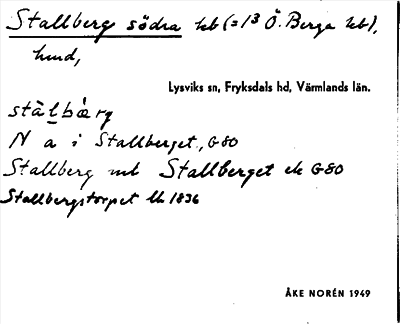 Stallberg södra hb (=1³ Ö. Berga hb),
hmd,
Lysviks sn, Fryksdals hd, Värmlands län.
stàlbæ̀rg
N a i Stallberget, G80
Stallberg mt Stallberget ek G80
Stallbergstorpet lh 1836
ÅKE NORÉN 1949